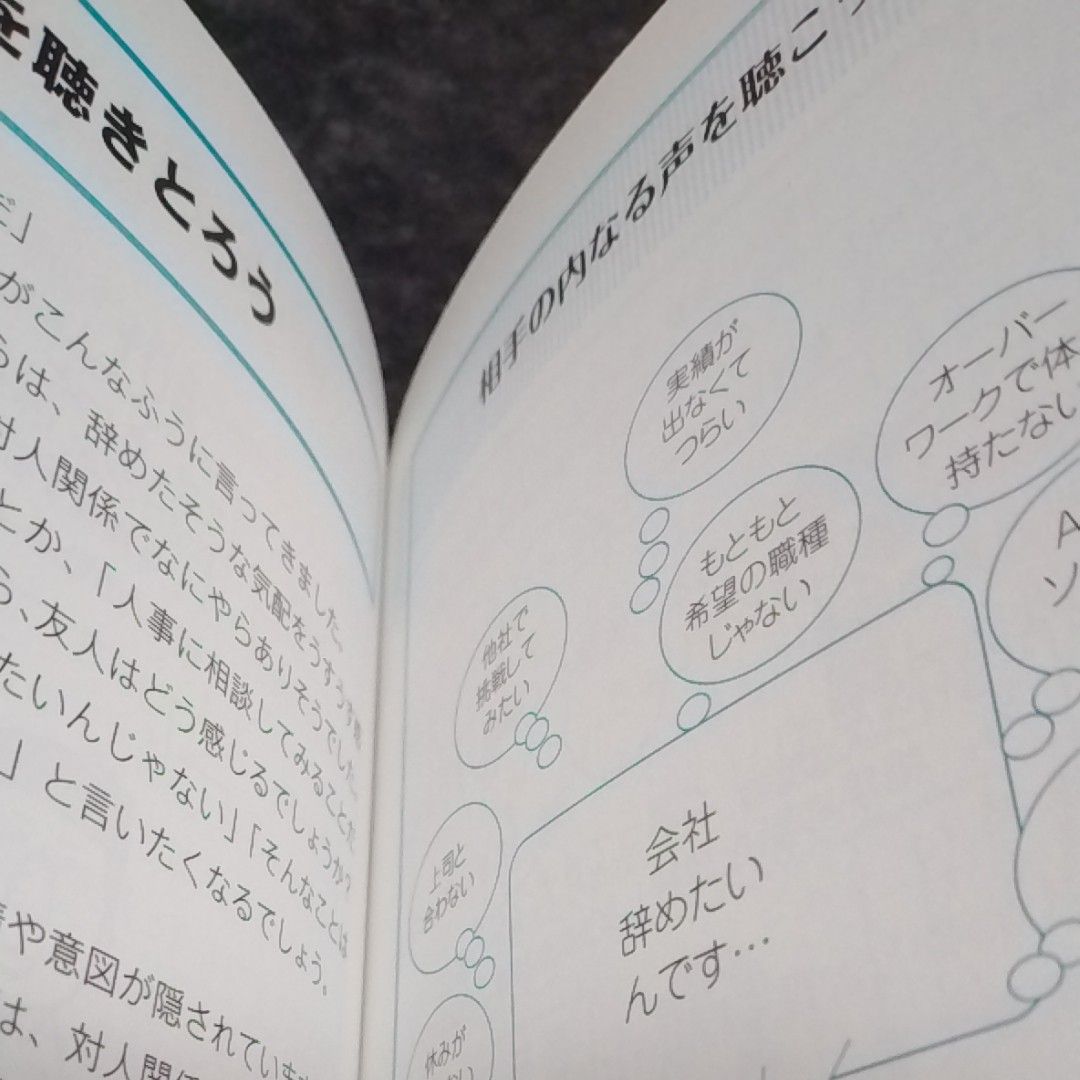 を聴きとろう
だ」
がこんなふうに言ってきました。
らは、辞めたそうな気配をうすうす感
対人関係でなにやらありそうでした。
とか、「人事に相談してみることだ
ら、友人はどう感じるでしょうか?
たいんじゃない」「そんなことは
」と言いたくなるでしょう。
や意図が隠されていま
は、対人関係
相手の内なる声を聴こう
実績が
出なくて
つらい
オーバー
ワークで体
持たない
もともと
希望の職種
じゃない
他社で
挑戦して
みたい
上司と
合わない
休みが
会社
辞めたい
んです…